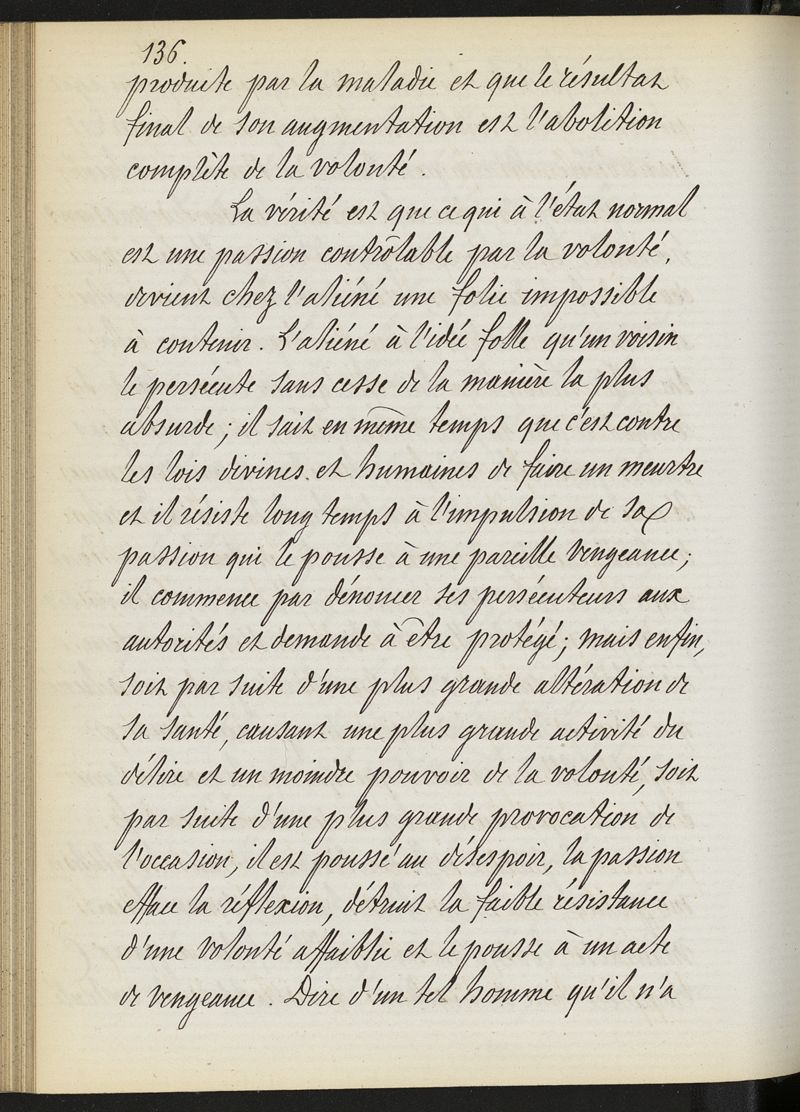 136.
produite par la maladie et que le résultat
final de son augmentation est l'abolition
complète de la volonté.
La vérité est que ce qui à l'état normal
est une passion contrôlable par la volonté,
devient chez l'aliéné une folie impossible
à contenir. L'aliéné à l'idée folle qu'un voisin
le persécute sans cesse de la manière la plus
absurde; il sait en même temps que c'est contre
les lois divines et humaines de faire un meurtre
et il résiste long temps à l'impulsion de sa
passion qui le pousse à une pareille vengeance;
il commence par dénoncer ses persécuteurs aux
autorités et demande à être protégé; mais enfin,
soit par suite d'une plus grande altération de
sa santé, causant une plus grande activité du
délire et un moindre pouvoir de la volonté, soit
par suite d'une plus grande provocation de
l'occasion, il est poussé au désespoir, la passion
efface la réflexion, détruit la faible résistance
d'une volonté affaiblie et le pousse à un acte
de vengeance. Dire d'un tel homme qu'il n'a